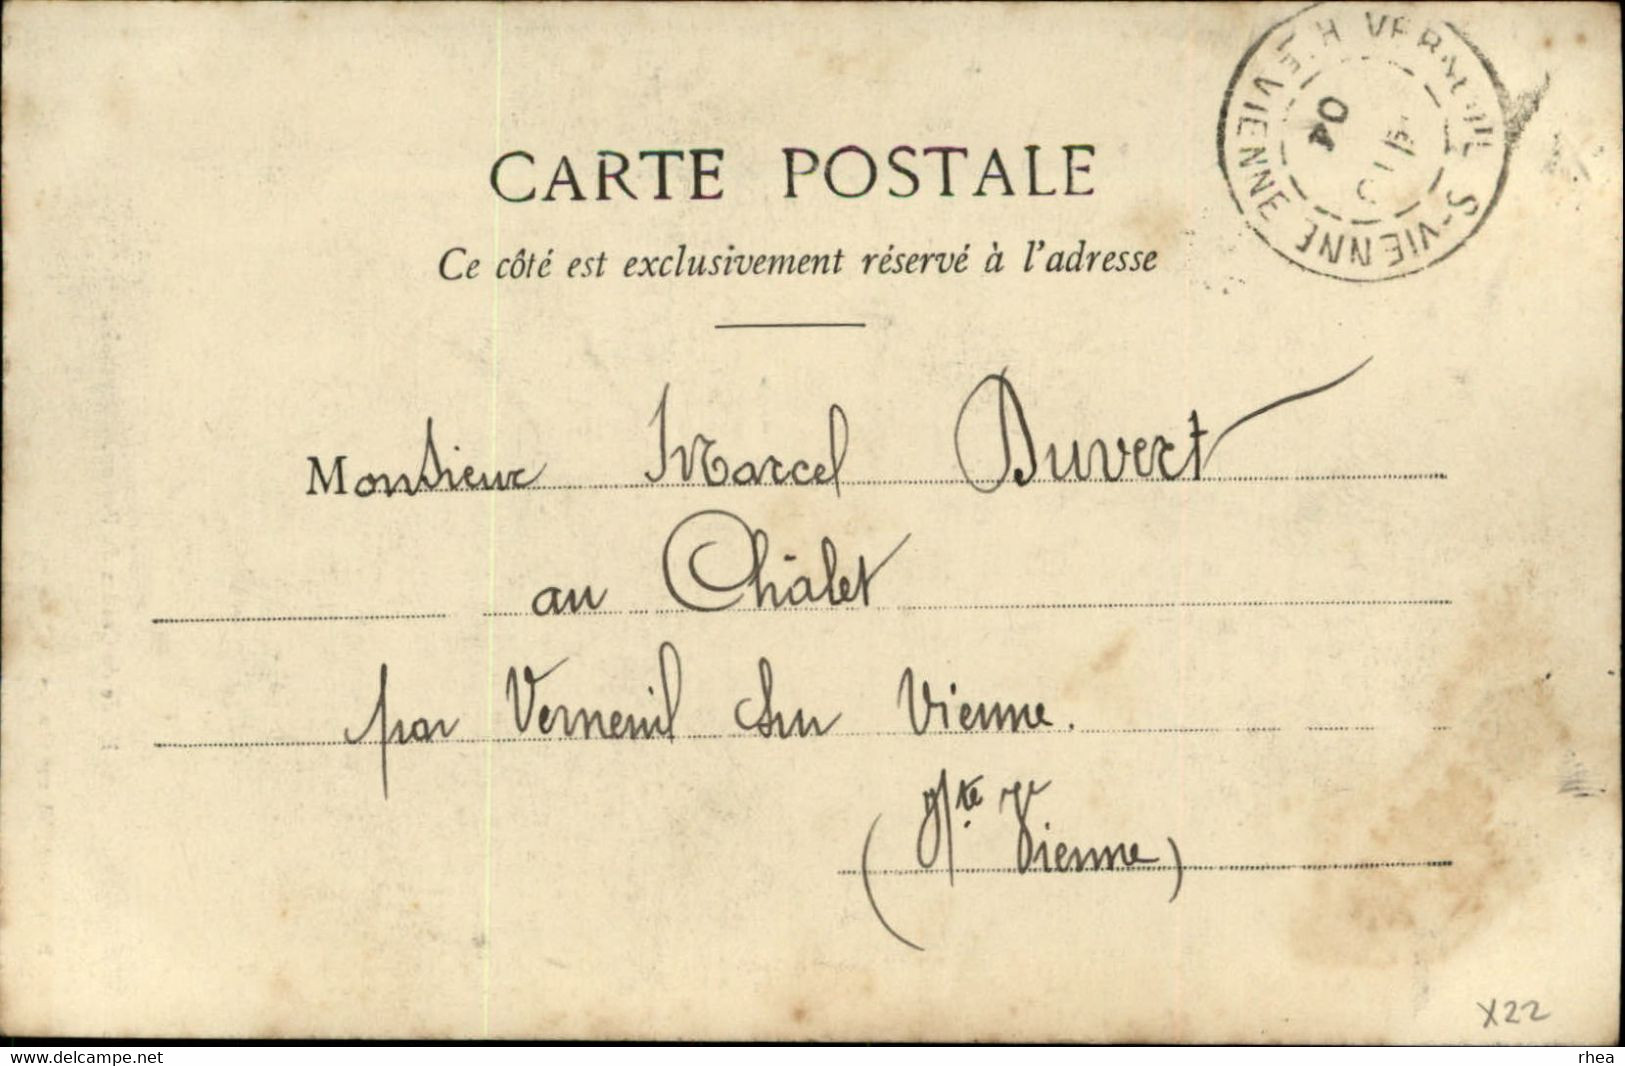 VERNEUIL S-VIENNE
H-TE VIENNE
04
CARTE POSTALE
Ce côté est exclusivement réservé à l'adresse
Monsieur Marcel Duvert
au Châlet
par Verneuil sur Vienne.
(Hte Vienne)
X22
delcampe.net
rhea